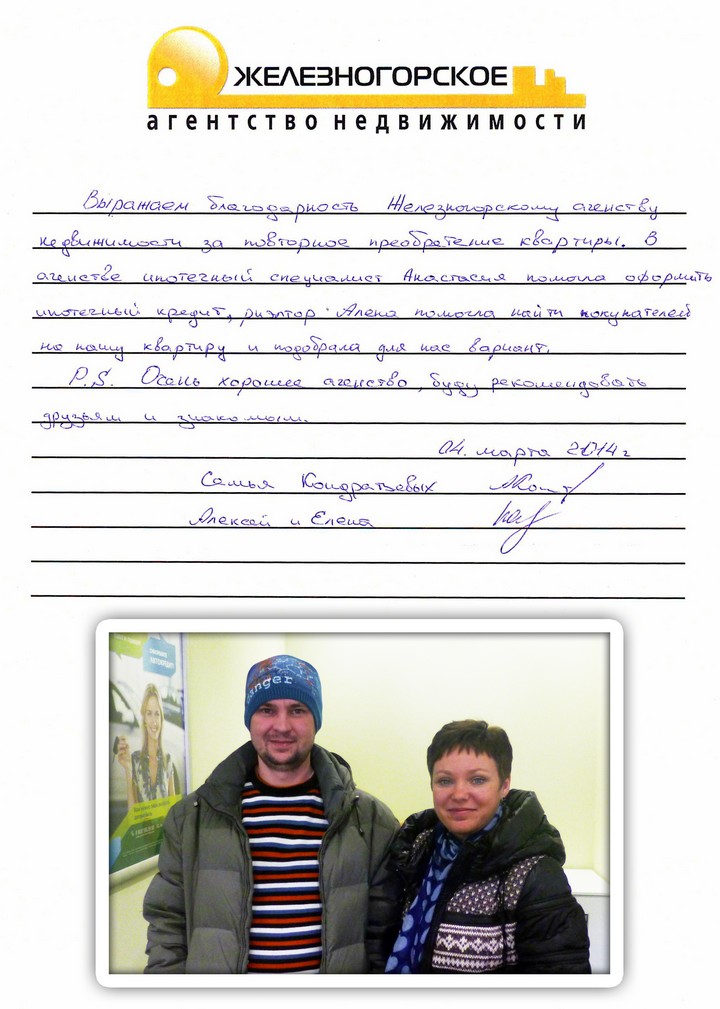 ЖЕЛЕЗНОГОРСКОЕ
агентство недвижимости
Выражаем благодарность Железногорскому агенству
недвижимости за повторное преобретение квартиры. В
агенстве ипотечный специалист Анастасия помогла оформить
ипотечный кредит, риэлтор Алена помогла найти покупателей
на нашу квартиру и подобрала для нас вариант.
P.S. Очень хорошее агенство, буду рекомендовать
друзьям и знакомым.
04. марта 2014 г
Семья Кондратьевых
Алексей и Елена
anger
АВТОКРЕДИТ